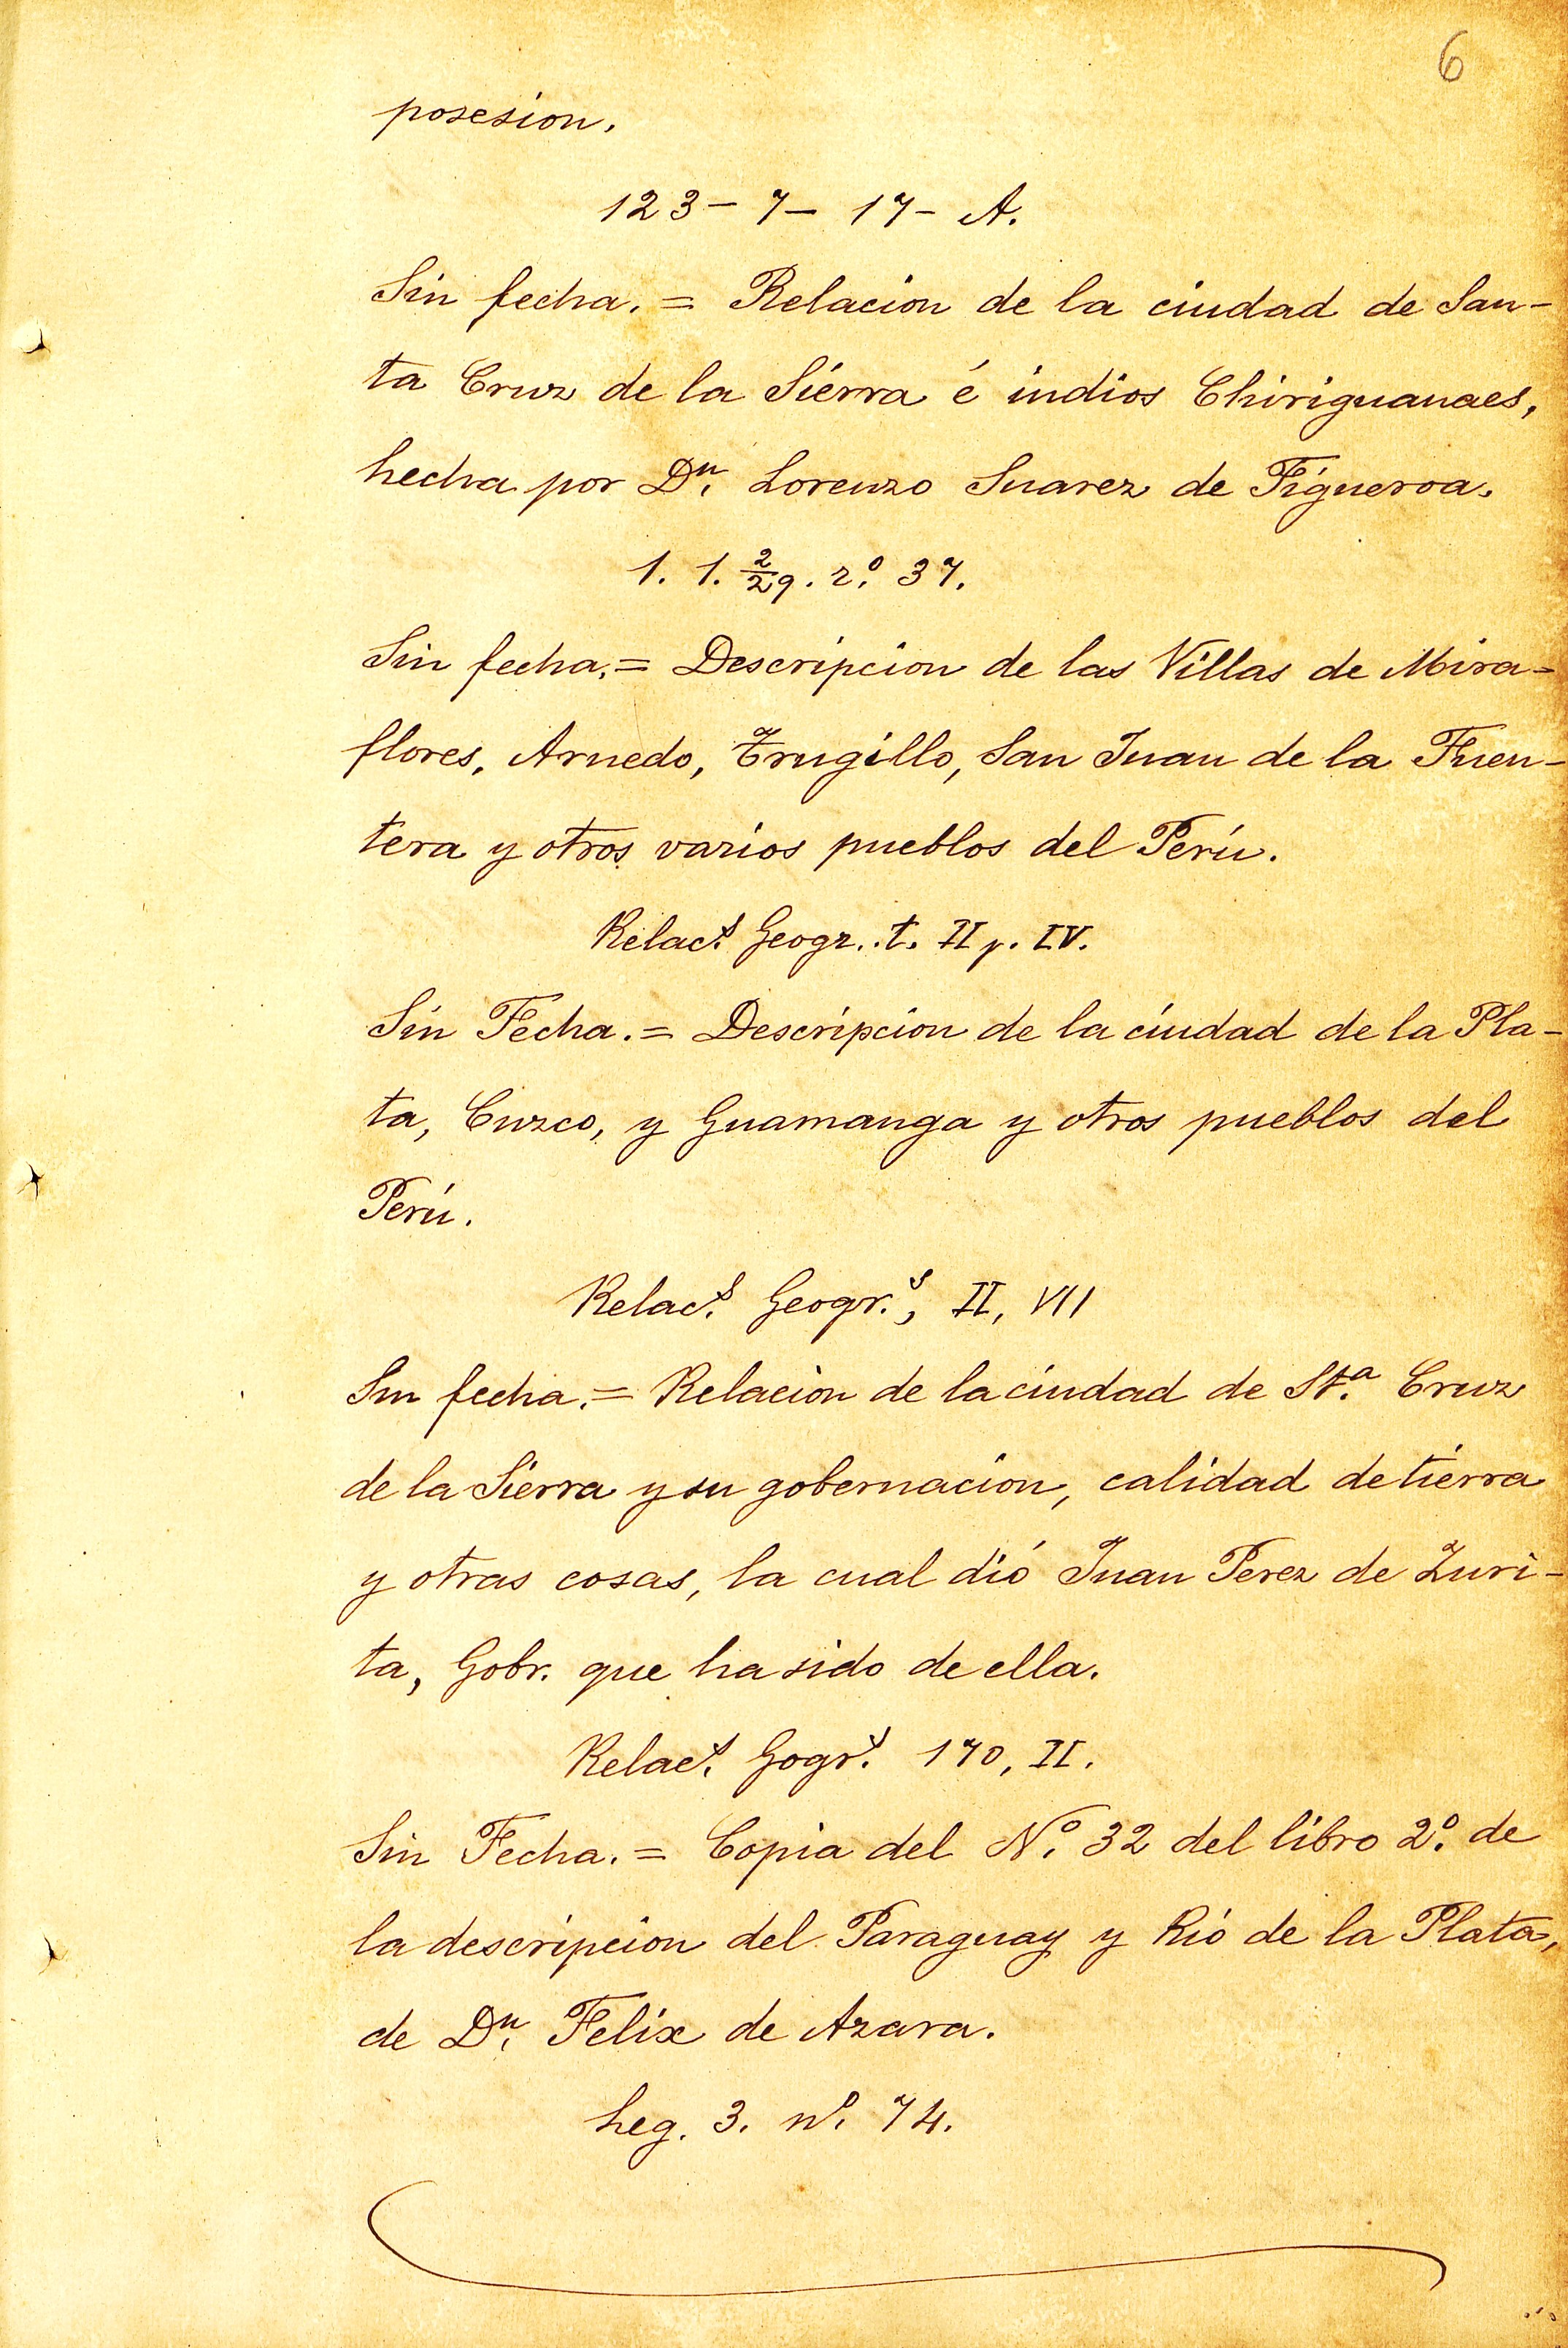 6
posesion.
123 - 7 - 17 - A.
Sin fecha. = Relacion de la ciudad de San-
ta Cruz de la Sierra é indios Chiriguanaes,
hecha por Dn. Lorenzo Suarez de Figueroa.
1. 1. 2/29. rº. 37.
Sin fecha. = Descripcion de las Villas de Mira=
flores, Arnedo, Trugillo, San Juan de la Fruen-
tera y otros varios pueblos del Perú.
Relacs. Geogr. t. II p. IV.
Sin Fecha. = Descripcion de la ciudad de la Pla-
ta, Cuzco, y Guamanga y otros pueblos del
Perú.
Relacs. Geogr.s, II, VII
Sin fecha. = Relacion de la ciudad de Sta. Cruz
de la Sierra y su gobernacion, calidad de tierra
y otras cosas, la cual dió Juan Perez de Zuri-
ta, Gobr. que ha sido de ella.
Relacs. Gogrs. 170, II.
Sin Fecha. = Copia del Nº. 32 del libro 2º. de
la descripcion del Paraguay y Rio de la Plata,
de Dn. Felix de Azara.
Leg. 3. nº. 74.